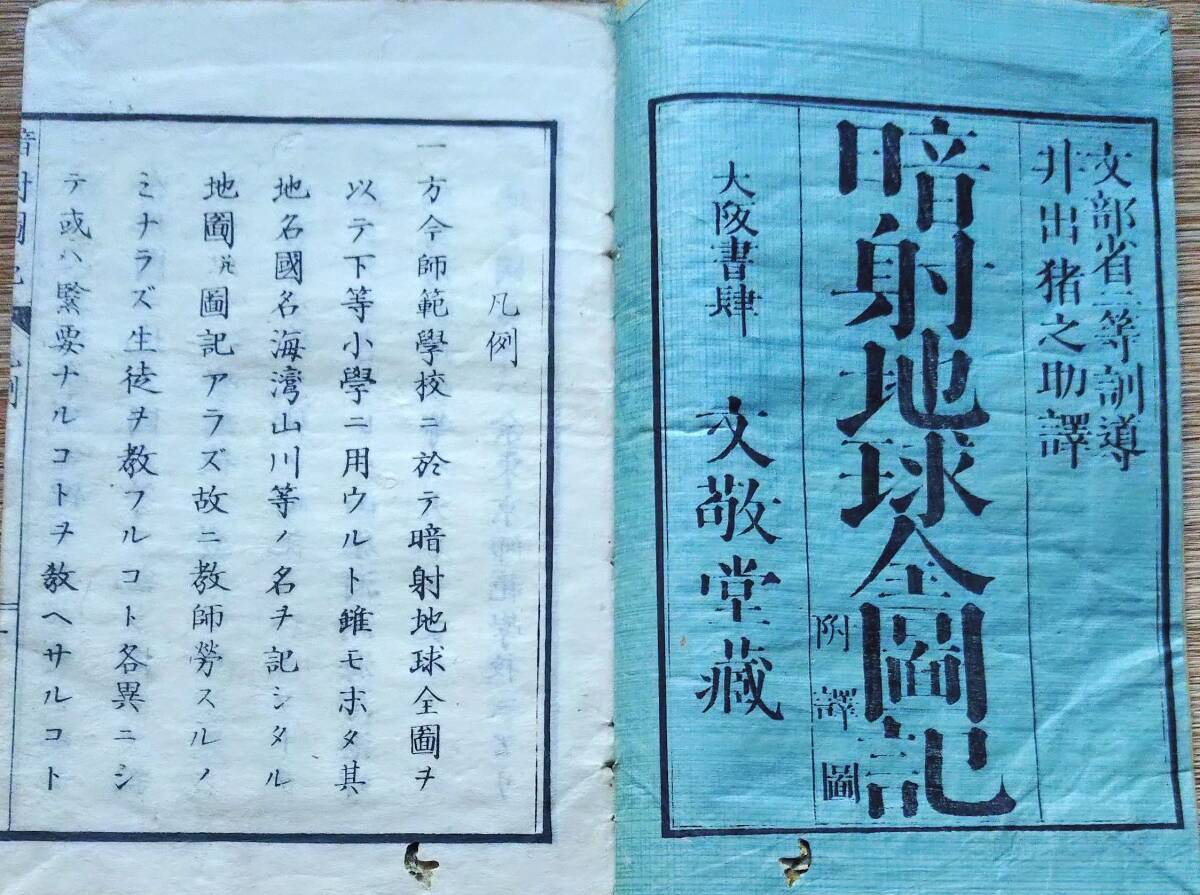 文部省二等訓導
井出猪之助譯
暗射地球全圖記
附譯圖
大阪書肆 文敬堂藏
凡例
一方今師範學校ニ於テ暗射地球全圖ヲ
以テ下等小學ニ用ウルト雖モホタ其
地名國名海湾山川等ノ名ヲ記シタル
地圖圖記アラズ故ニ教師勞スルノ
ミナラズ生徒ヲ教フルコト各異ニシ
テ或ハ緊要ナルコトヲ教ヘサルコト